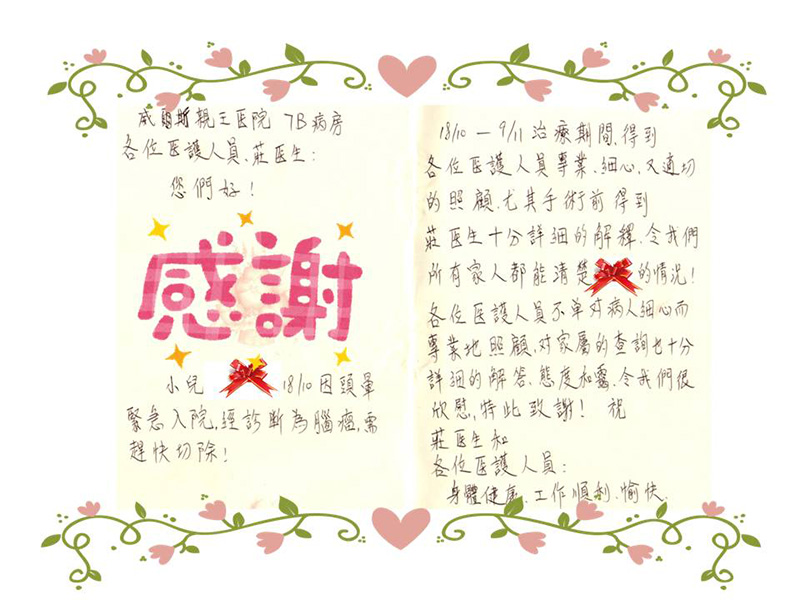 威爾斯親王医院 7B病房
各位医護人員、莊医生:
您們好!
感謝
小兒 18/10因頭暈
緊急入院,經診断為腦瘤,需
趕快切除!
18/10 — 9/11 治療期間、得到
各位医護人員專業、細心、又適切
的照顧、尤其手術前得到
莊医生十分詳細的解釋、令我們
所有家人都能清楚 的情況!
各位医護人員不单对病人細心而
專業地照顧、对家屬的查詢也十分
詳細的解答、態度和靄、令我們很
欣慰,特此致謝! 祝
莊医生和
各位医護人員:
身體健康、工作順利、愉快.